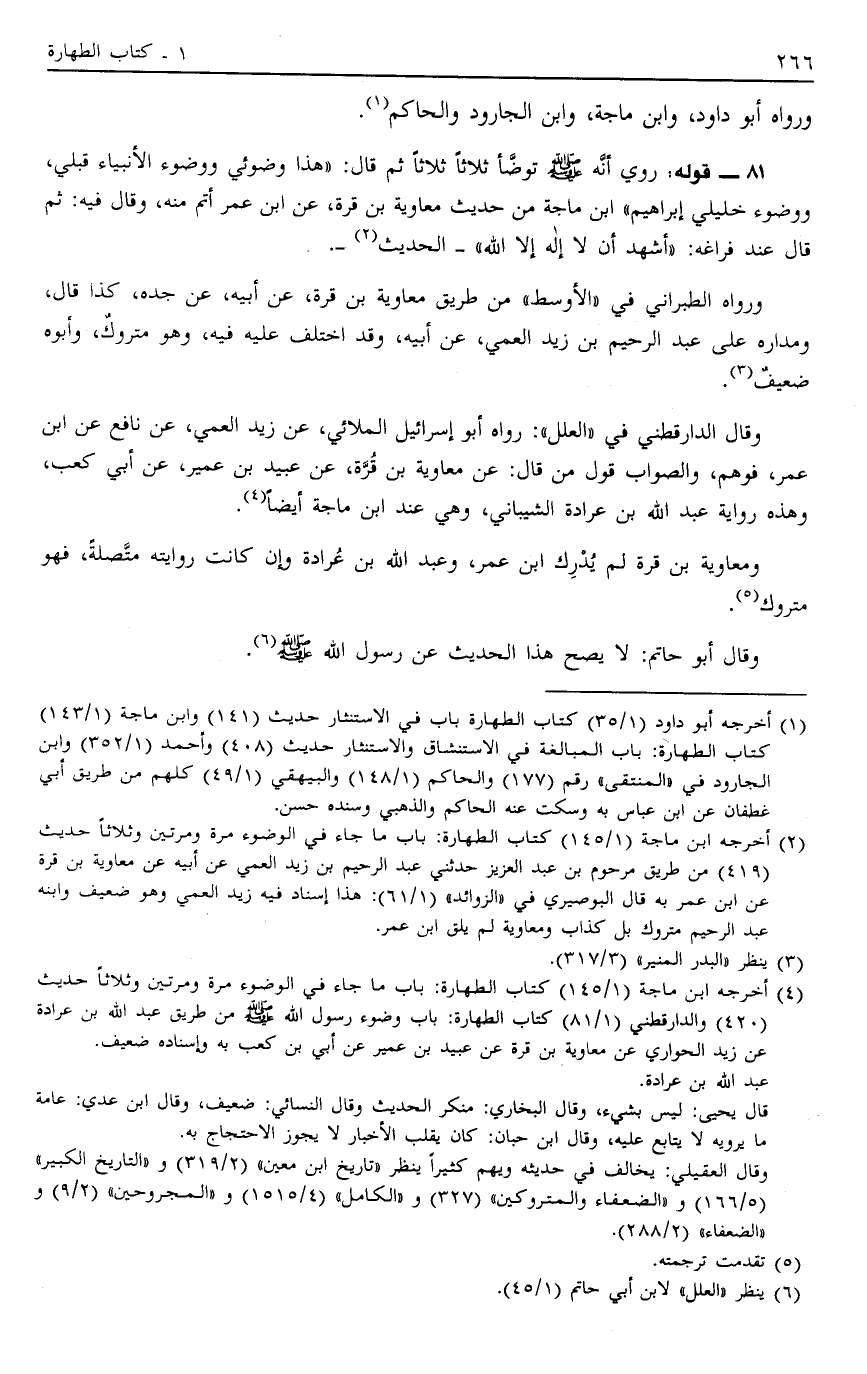 ٢٦٦
١ - كتاب الطهارة
ورواه أبو داود، وابن ماجة، وابن الجارود والحاكم(١).
٨١ — قوله: روي أنَّه ﷺ توضَّأ ثلاثاً ثلاثاً ثم قال: «هذا وضوئي ووضوء الأنبياء قبلي،
ووضوء خليلي إبراهيم» ابن ماجة من حديث معاوية بن قرة، عن ابن عمر أتم منه، وقال فيه: ثم
قال عند فراغه: «أشهد أن لا إلٰه إلا الله» - الحديث(٢) -.
ورواه الطبراني في «الأوسط» من طريق معاوية بن قرة، عن أبيه، عن جده، كذا قال،
ومداره على عبد الرحيم بن زيد العمي، عن أبيه، وقد اختلف عليه فيه، وهو متروكٌ، وأبوه
ضعيفٌ(٣).
وقال الدارقطني في «العلل»: رواه أبو إسرائيل الملائي، عن زيد العمي، عن نافع عن ابن
عمر، فوهم، والصواب قول من قال: عن معاوية بن قُرَّة، عن عبيد بن عمير، عن أبي كعب،
وهذه رواية عبد الله بن عرادة الشيباني، وهي عند ابن ماجة أيضاً(٤).
ومعاوية بن قرة لم يُدْرِك ابن عمر، وعبد الله بن عُرادة وإن كانت روايته متَّصلةً، فهو
متروك(٥).
وقال أبو حاتم: لا يصح هذا الحديث عن رسول الله ﷺ(٦).
(١) أخرجه أبو داود (٣٥/١) كتاب الطهارة باب في الاستنثار حديث (١٤١) وابن ماجة (١٤٣/١)
كتاب الطهارة: باب المبالغة في الاستنشاق والاستنثار حديث (٤٠٨) وأحمد (٣٥٢/١) وابن
الجارود في «المنتقى» رقم (١٧٧) والحاكم (١٤٨/١) والبيهقي (٤٩/١) كلهم من طريق أبي
غطفان عن ابن عباس به وسكت عنه الحاكم والذهبي وسنده حسن.
(٢) أخرجه ابن ماجة (١٤٥/١) كتاب الطهارة: باب ما جاء في الوضوء مرة ومرتين وثلاثاً حديث
(٤١٩) من طريق مرحوم بن عبد العزيز حدثني عبد الرحيم بن زيد العمي عن أبيه عن معاوية بن قرة
عن ابن عمر به قال البوصيري في «الزوائد» (٦١/١): هذا إسناد فيه زيد العمي وهو ضعيف وابنه
عبد الرحيم متروك بل كذاب ومعاوية لم يلق ابن عمر.
(٣) ينظر «البدر المنير» (٣١٧/٣).
(٤) أخرجه ابن ماجة (١٤٥/١) كتاب الطهارة: باب ما جاء في الوضوء مرة ومرتين وثلاثاً حديث
(٤٢٠) والدارقطني (٨١/١) كتاب الطهارة: باب وضوء رسول الله ﷺ من طريق عبد الله بن عرادة
عن زيد الحواري عن معاوية بن قرة عن عبيد بن عمير عن أبي بن كعب به وإسناده ضعيف.
عبد الله بن عرادة.
قال يحيى: ليس بشيء، وقال البخاري: منكر الحديث وقال النسائي: ضعيف، وقال ابن عدي: عامة
ما يرويه لا يتابع عليه، وقال ابن حبان: كان يقلب الأخبار لا يجوز الاحتجاج به.
وقال العقيلي: يخالف في حديثه ويهم كثيراً ينظر «تاريخ ابن معين» (٣١٩/٢) و «التاريخ الكبير»
(١٦٦/٥) و «الضعفاء والمتروكين» (٣٢٧) و «الكامل» (١٥١٥/٤) و «المجروحين» (٩/٢) و
«الضعفاء» (٢٨٨/٢).
(٥) تقدمت ترجمته.
(٦) ينظر «العلل» لابن أبي حاتم (٤٥/١).